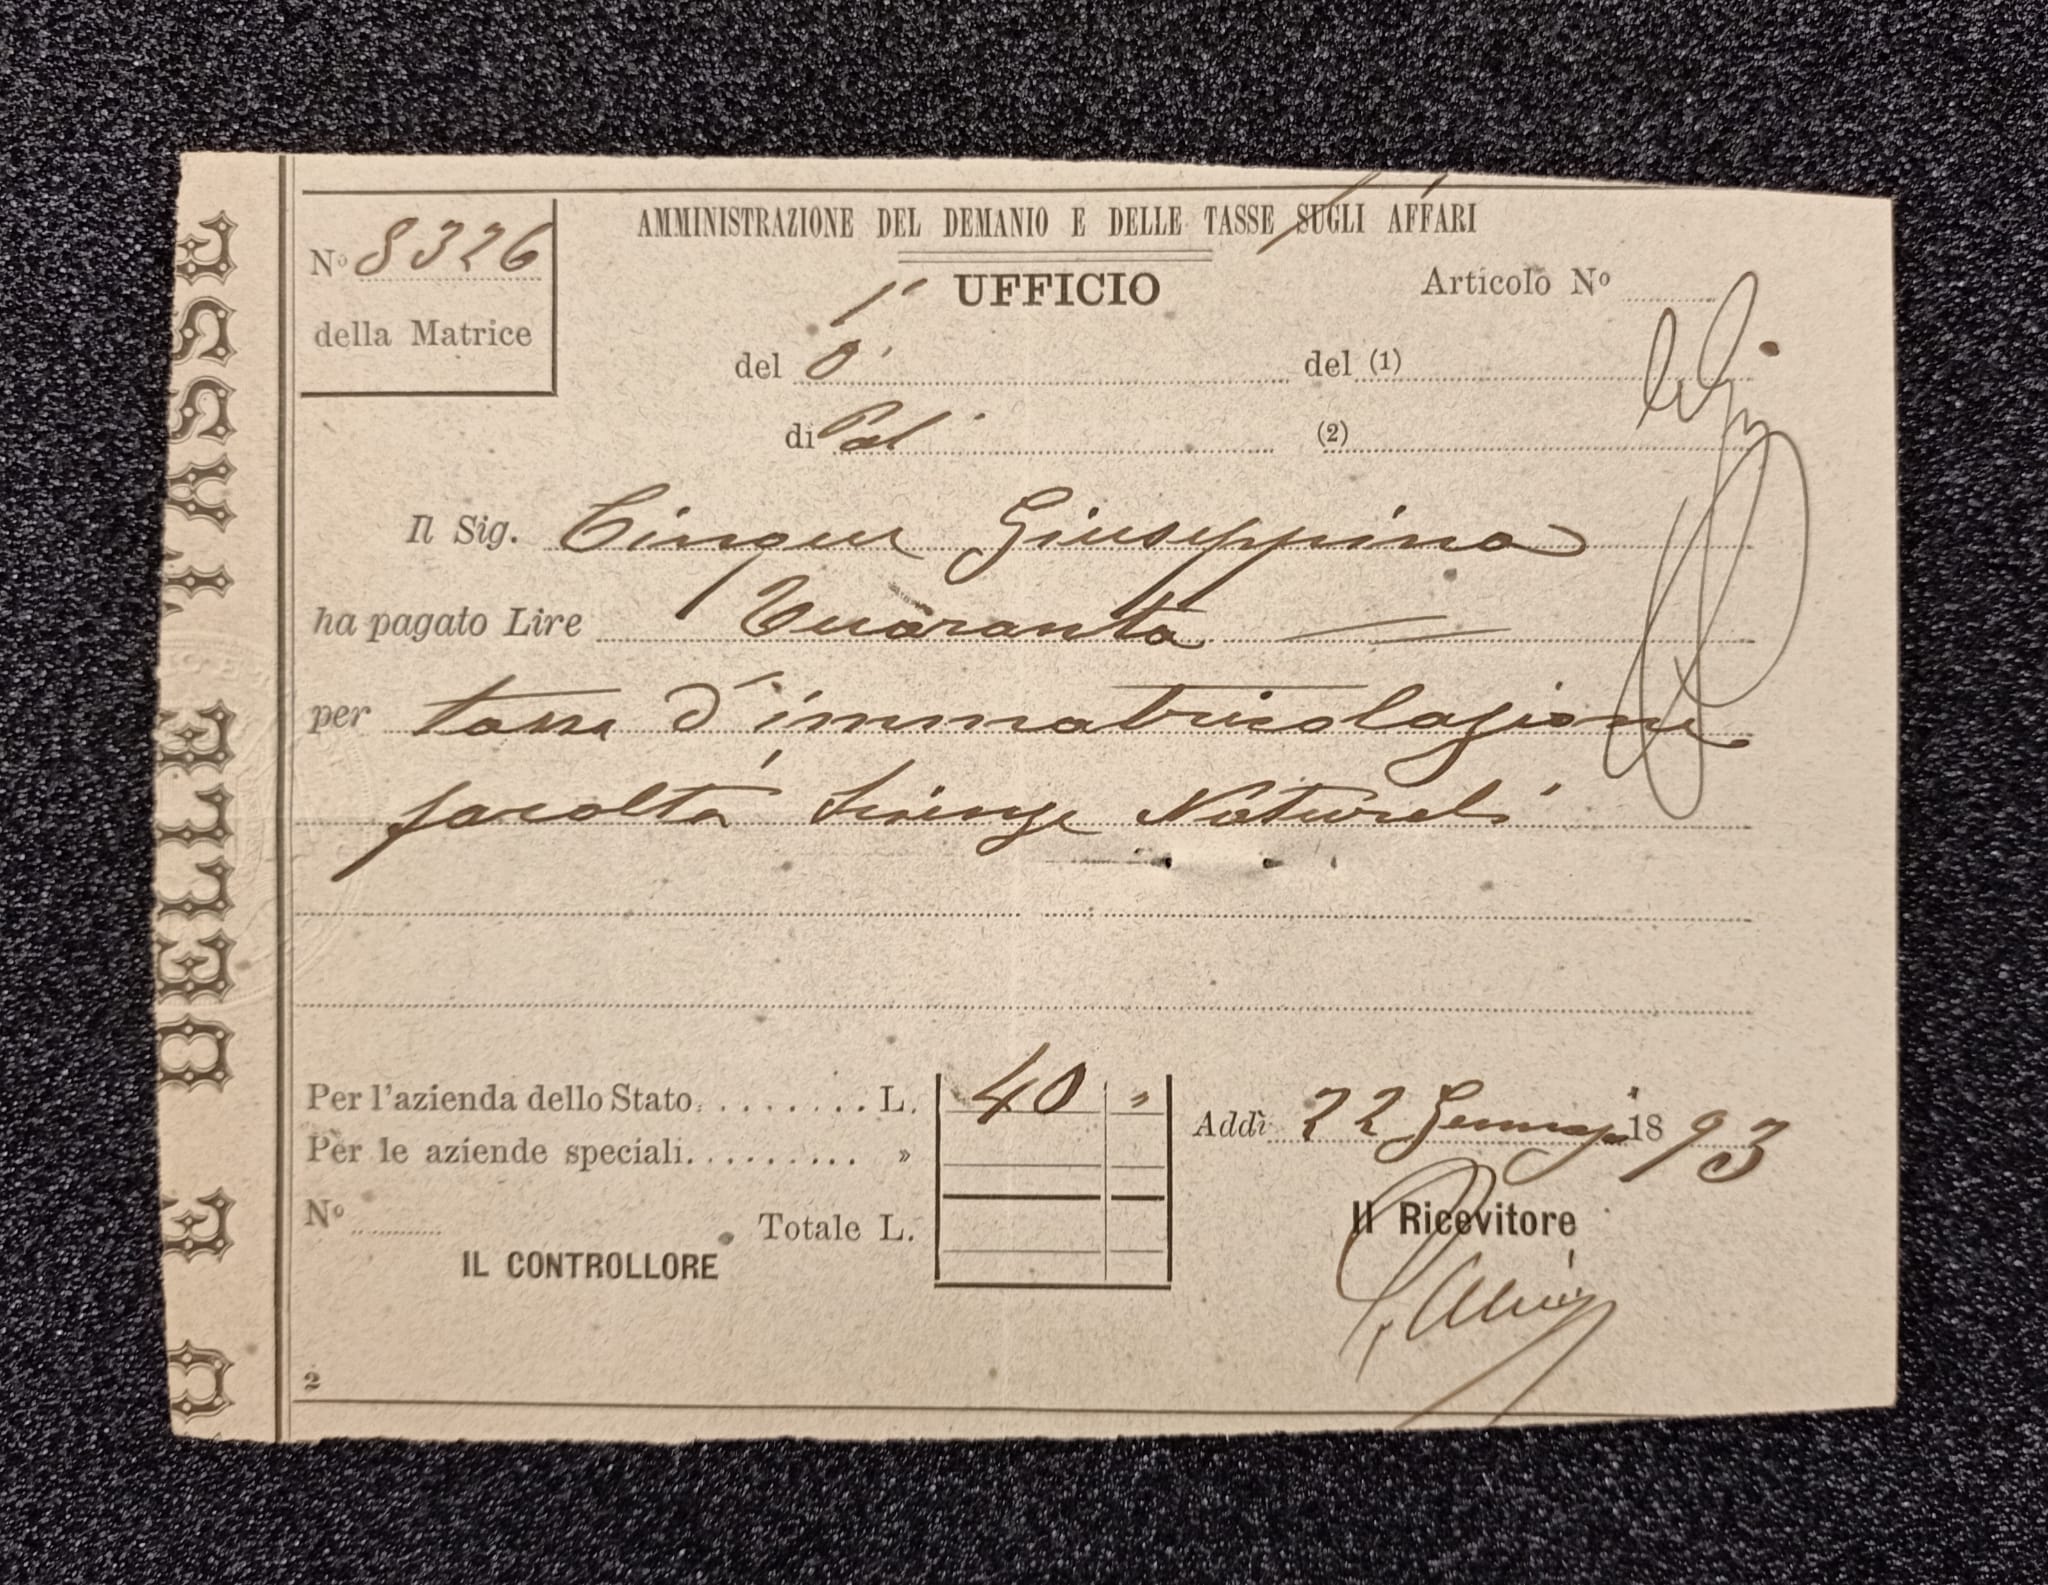 AMMINISTRAZIONE DEL DEMANIO E DELLE TASSE SUGLI AFFARI
Nº 8326
della Matrice
UFFICIO
Articolo Nº
del
del (1)
di Pal
(2)
Il Sig. Cinque Giuseppina
ha pagato Lire Quaranta
per tassa d'immatricolazione
facoltà Scienze Naturali
Per l'azienda dello Stato........L. 40 "
Addì 22 Gennajo 1893
Per le aziende speciali.......... »
Nº
Totale L.
Il Ricevitore
IL CONTROLLORE
2
E DELLE TASSE